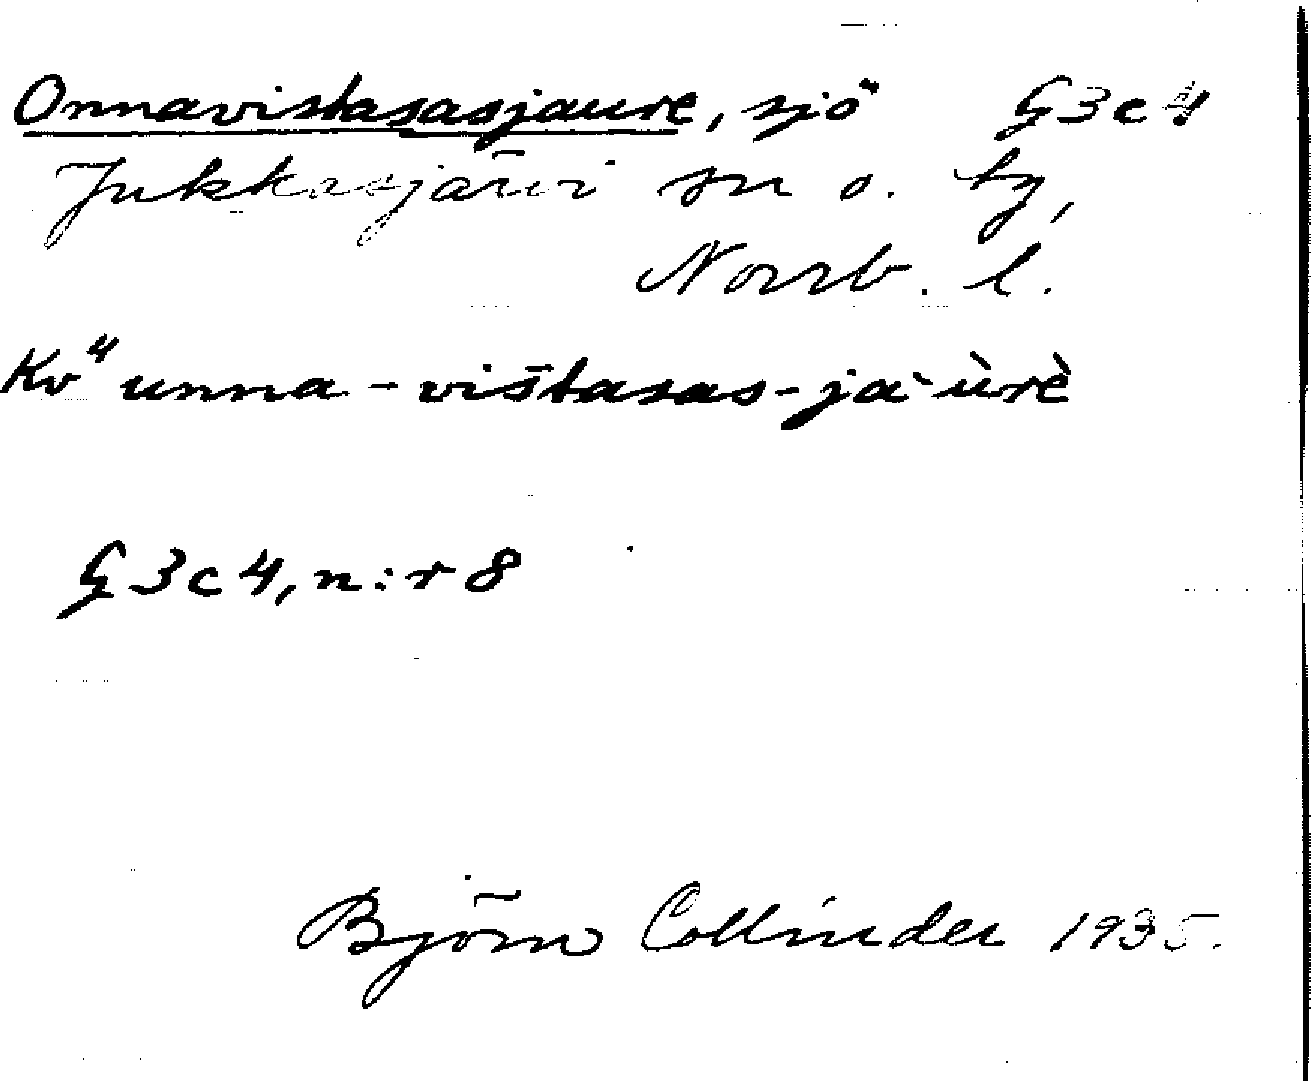 Onnavistasasjaure, sjö G3c4
Jukkasjärvi sn o. by,
Norrb. l.
Kv⁴ unna-vištasas-jàùrè
G3c4, n:r 8
Björn Collinder 1935.